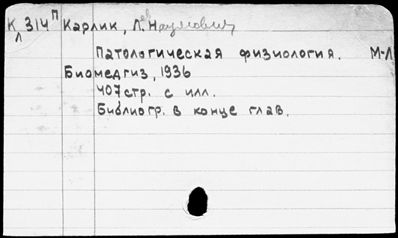 К 314 П Карлик, Лев Наумович
Л
Патологическая физиология. М-Л
Биомедгиз, 1936
407 стр. с илл.
Библиогр. в конце глав.